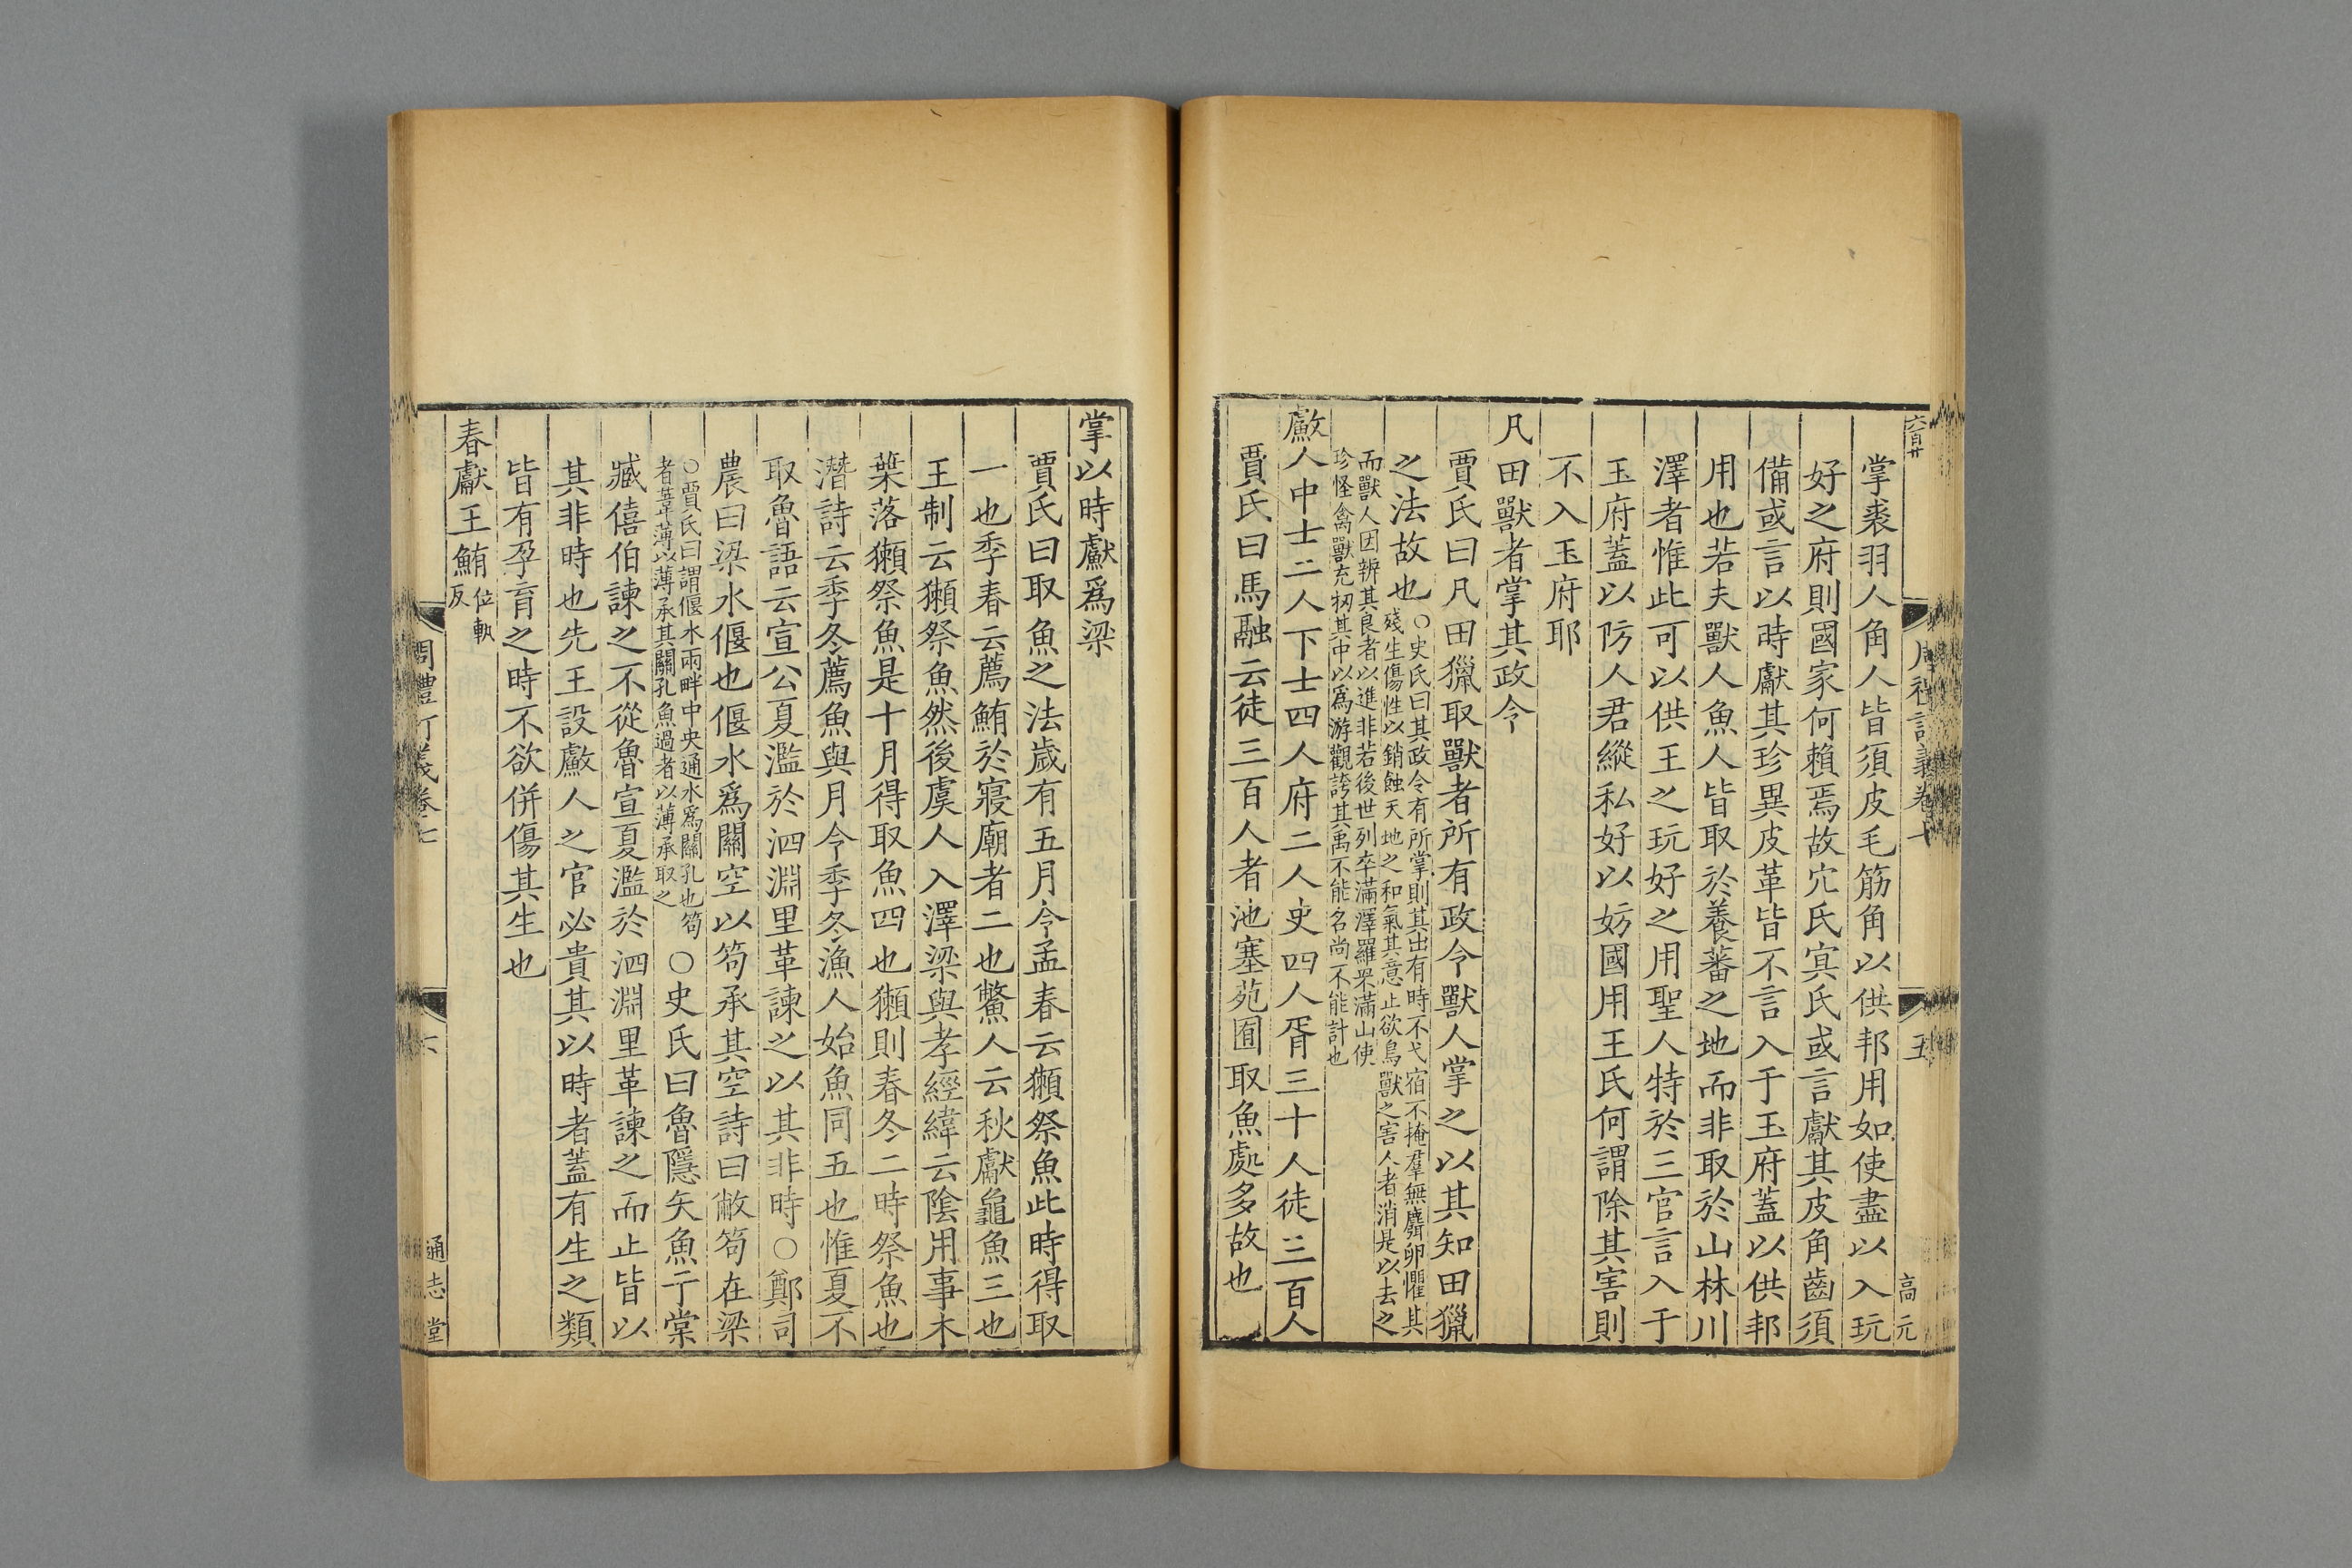 六百廿
五
高元
掌裘羽人角人皆須皮毛筋角以供邦用如使盡以入玩
好之府則國家何賴焉故宂氏㝠氏或言獻其皮角齒須
備或言以時獻其珍異皮革皆不言入于玉府蓋以供邦
用也若夫獸人魚人皆取於養蕃之地而非取於山林川
澤者惟此可以供王之玩好之用聖人特於三官言入于
玉府蓋以防人君縱私好以妨國用王氏何謂除其害則
不入玉府耶
凡田獸者掌其政令
賈氏曰凡田獵取獸者所有政令獸人掌之以其知田獵
之法故也
○史氏曰其政令有所掌則其出有時不弋宿不掩羣無麛卵懼其
殘生傷性以銷蝕天地之和氣其意止欲鳥獸之害人者消是以去之
而獸人因辨其良者以進非若後世列卒滿澤羅罘滿山使
珍怪禽獸充牣其中以爲游觀誇其禹不能名尚不能計也
䱷人中士二人下士四人府二人史四人胥三十人徒三百人
賈氏曰馬融云徒三百人者池塞苑囿取魚處多故也
掌以時䱷爲梁
賈氏曰取魚之法歲有五月令孟春云獺祭魚此時得取
一也季春云薦鮪於寢廟者二也鱉人云秋獻龜魚三也
王制云獺祭魚然後虞人入澤梁與孝經緯云隂用事木
葉落獺祭魚是十月得取魚四也獺則春冬二時祭魚也
潛詩云季冬薦魚與月令季冬漁人始魚同五也惟夏不
取魯語云宣公夏濫於泗淵里革諫之以其非時○鄭司
農曰梁水偃也偃水爲關空以笱承其空詩曰敝笱在梁
○賈氏曰謂偃水兩畔中央通水爲關孔也笱
者葦薄以薄承其關孔魚過者以薄承取之
○史氏曰魯隱矢魚于棠
臧僖伯諫之不從魯宣夏濫於泗淵里革諫之而止皆以
其非時也先王設䱷人之官必貴其以時者蓋有生之類
皆有孕育之時不欲併傷其生也
春獻王鮪
位軌
反
周禮訂義卷七
六
通志堂